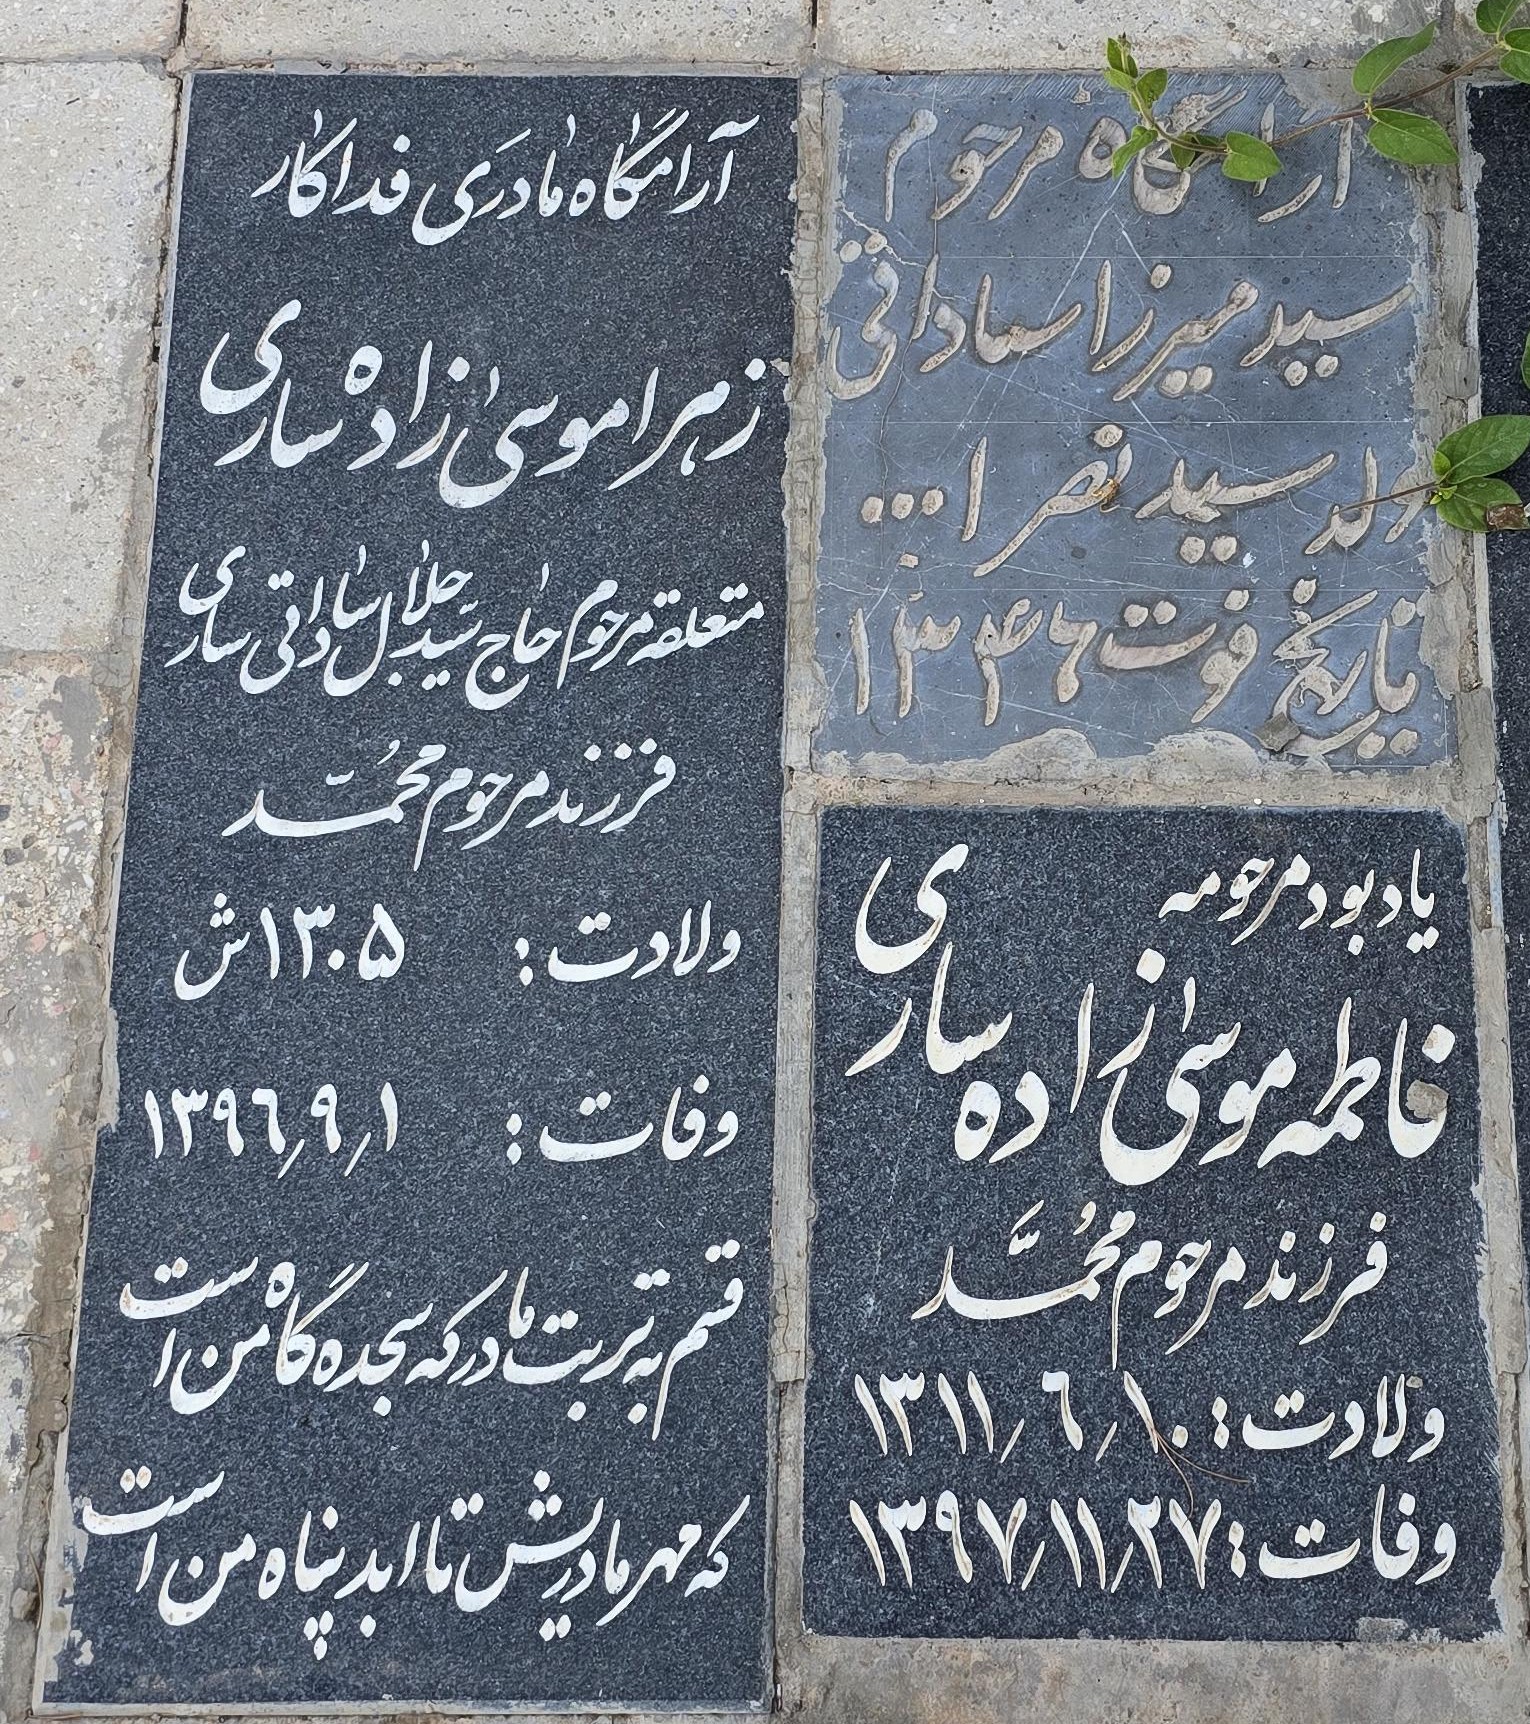 آرامگاه مادری فداکار
زهرا موسی زاده ساری
متعلقه مرحوم حاج سید جلال ساداتی ساری
فرزند مرحوم محمّد
ولادت: ۱۳۰۵ ش
وفات: ۱۳۹۶٫۹٫۱
قسم به تربت مادر که سجده گاه من است
که مهر مادریش تا ابد پناه من است
آرامگاه مرحوم
سید میرزا ساداتی
ولد سید نصرالله
تاریخ فوت ۱۳۴۶
یادبود مرحومه
فاطمه موسی زاده ساری
فرزند مرحوم مُحمَّد
ولادت: ۱۳۱۱٫۶٫۱۰
وفات: ۱۳۹۷٫۱۱٫۲۷